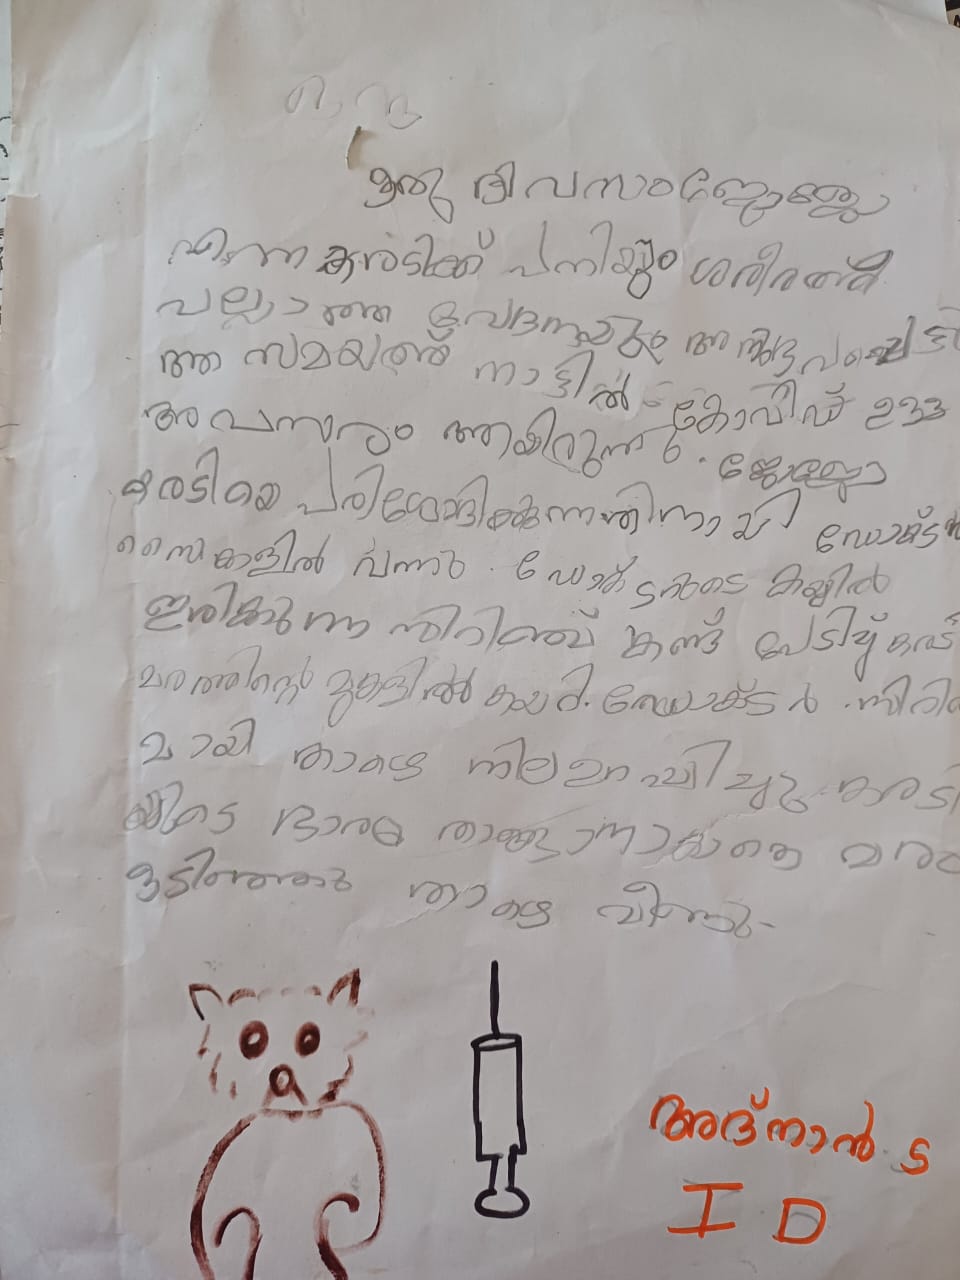 ഒരു ദിവസം ജോജോ
എന്ന കരടിക്ക് പനിയും ശരീരത്തിൽ
വല്ലാത്ത വേദനയും അനുഭവപ്പെട്ടു
ആ സമയത്ത് നാട്ടിൽ കോവിഡ് ഉള്ള
അവസരം ആയിരുന്നു. ജോജോ
കരടിയെ പരിശോദിക്കുന്നതിനായി ഡോക്ടർ
സൈക്കളിൽ വന്നു. ഡോക്ടറുടെ കയ്യിൽ
ഇരിക്കുന്ന സിറിഞ്ച് കണ്ട് പേടിച്ച്
മരത്തിന്റെ മുകളിൽ കയറി. ഡോക്ടർ
മായി താഴെ നിലഉറപ്പിച്ചു കരടി
യുടെ ഭാരം താങ്ങാനാവാതെ മരം
ഒടിഞ്ഞു താഴെ വീണു.
അദ്നാൻ ട
I D